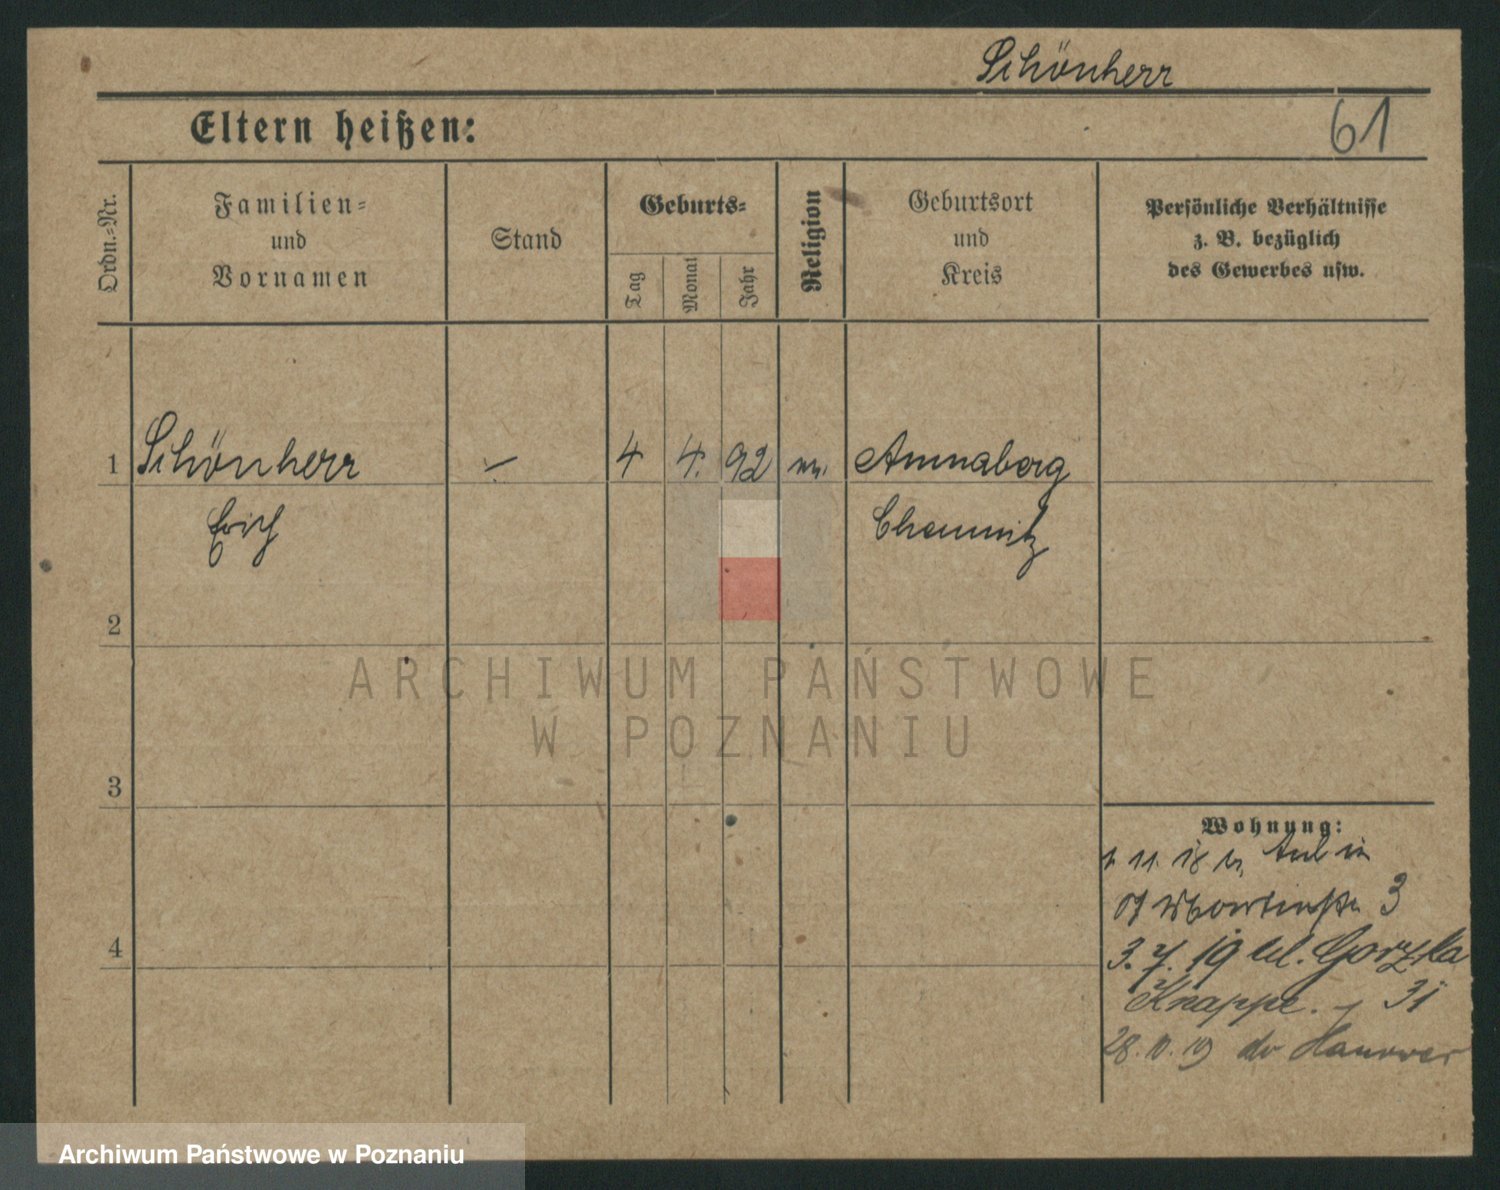 Schönherr
61
Eltern heißen:
Ordn.-Nr.
Familien-
und
Vornamen
Stand
Geburts-
Tag
Monat
Jahr
Religion
Geburtsort
und
Kreis
Persönliche Verhältnisse
z. B. bezüglich
des Gewerbes usw.
1 Schönherr — 4 4. 92 Annaberg
Erich Chemnitz
2
ARCHIWUM PAŃSTWOWE
W POZNANIU
3
Wohnung:
11. 18
3
4
3. 7. 19 Gorzka
Knappe. 31
28. 10. 19 Hanover
Archiwum Państwowe w Poznaniu